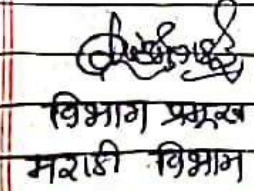 विभाग प्रमुख
मराठी विभाग